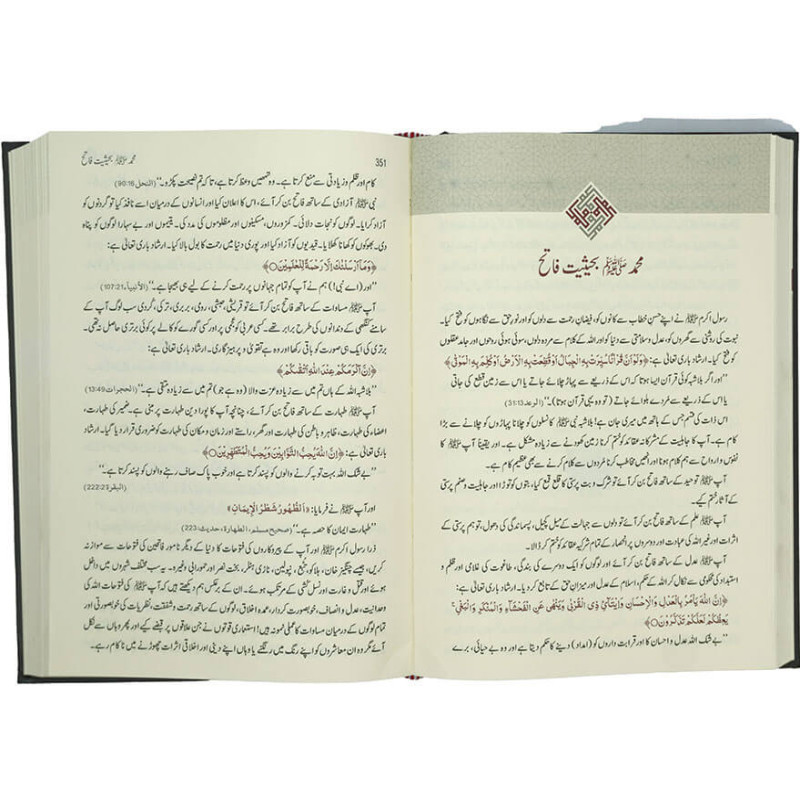 محمد ﷺ بحیثیت فاتح
رسول اکرم ﷺ نے اپنے حسن خطاب سے کانوں کو، فیضان رحمت سے دلوں کو اور نور حق سے نگاہوں کو فتح کیا۔
نبوت کی روشنی سے گھروں کو، عدل وسلامتی سے دنیا کو اور اللہ کے کلام سے مردہ دلوں، سوئی ہوئی روحوں اور جامد عقلوں
کو فتح کیا۔ ارشاد باری تعالیٰ ہے: ﴿وَلَوْ اَنَّ قُرْاٰنًا سُيِّرَتْ بِهِ الْجِبَالُ اَوْ قُطِّعَتْ بِهِ الْاَرْضُ اَوْ كُلِّمَ بِهِ الْمَوْتٰى﴾
’’اور اگر بلاشبہ کوئی قرآن ایسا ہوتا کہ اس کے ذریعے سے پہاڑ چلائے جاتے یا اس سے زمین قطع کی جاتی
یا اس کے ذریعے سے مُردے بلوائے جاتے (تو وہ یہی قرآن ہوتا)۔‘‘ (الرعد 31:13)
اس ذات کی قسم جس کے ہاتھ میں میری جان ہے! بلاشبہ نبی ﷺ کا نسلوں کو چلانا پہاڑوں کو چلانے سے بڑا
کام ہے۔ آپ کا جاہلیت کے مشرکانہ عقائد کو ختم کرنا زمین کھودنے سے زیادہ مشکل ہے۔ اور یقیناً آپ ﷺ کا
نفوس وارواح سے ہم کلام ہونا اور انھیں مخاطب کرنا مُردوں سے کلام کرنے سے بھی بڑا کام ہے۔
آپ ﷺ توحید کے ساتھ فاتح بن کر آئے تو شرک وبت پرستی کا قلع قمع کیا، بتوں کو توڑا اور جاہلیت وصنم پرستی
کے آثار ختم کیے۔
آپ ﷺ علم کے ساتھ فاتح بن کر آئے تو دلوں سے جہالت کے میل کچیل، پسماندگی کی دھول، توہم پرستی کے
اثرات اور غیر اللہ کی عبادت اور دوسروں پر انحصار کے تمام شرکیہ عقائد کو ختم کر ڈالا۔
آپ ﷺ عدل کے ساتھ فاتح بن کر آئے اور لوگوں کو ایک دوسرے کی بندگی، طاغوت کی غلامی اور ظلم و
استبداد کی محکومی سے نکال کر اللہ کے حکم، اسلام کے عدل اور میزان حق کے تابع کر دیا۔ ارشاد باری تعالیٰ ہے:
﴿اِنَّ اللّٰهَ يَاْمُرُ بِالْعَدْلِ وَالْاِحْسَانِ وَاِيْتَآئِ ذِي الْقُرْبٰى وَيَنْهٰى عَنِ الْفَحْشَآءِ وَالْمُنْكَرِ وَالْبَغْيِ ۚ
يَعِظُكُمْ لَعَلَّكُمْ تَذَكَّرُوْنَ○﴾
’’بے شک اللہ عدل واحسان کا اور قرابت داروں کو (امداد) دینے کا حکم دیتا ہے اور وہ بے حیائی، برے
محمد ﷺ بحیثیت فاتح 351
کام اور ظلم وزیادتی سے منع کرتا ہے۔ وہ تمھیں وعظ کرتا ہے، تاکہ تم نصیحت پکڑو۔‘‘ (النحل 90:16)
نبی ﷺ آزادی کے ساتھ فاتح بن کر آئے، اس کا اعلان کیا اور انسانوں کے درمیان اسے نافذ کیا تو گردنوں کو
آزاد کرایا۔ لوگوں کو نجات دلائی۔ کمزوروں، مسکینوں اور مظلوموں کی مدد کی۔ یتیموں اور بے سہارا لوگوں کو پناہ
دی۔ بھوکوں کو کھانا کھلایا۔ قیدیوں کو آزاد کیا اور پوری دنیا میں رحمت کا بول بالا کیا۔ ارشاد باری تعالیٰ ہے:
﴿وَمَآ اَرْسَلْنٰكَ اِلَّا رَحْمَةً لِّلْعٰلَمِيْنَ○﴾
’’اور (اے نبی!) ہم نے آپ کو تمام جہانوں پر رحمت کرنے کے لیے ہی بھیجا ہے۔‘‘ (الأنبیاء 107:21)
آپ ﷺ مساوات کے ساتھ فاتح بن کر آئے تو قریشی، حبشی، رومی، بربری، ترکی، کُردی سب لوگ آپ کے
سامنے کنگھی کے دندانوں کی طرح برابر تھے۔ کسی عربی کو عجمی پر اور کسی گورے کو کالے پر کوئی برتری حاصل نہ تھی۔
برتری کی ایک ہی صورت کو باقی رکھا اور وہ ہے تقویٰ و پرہیزگاری۔ ارشاد باری تعالیٰ ہے:
﴿اِنَّ اَكْرَمَكُمْ عِنْدَ اللّٰهِ اَتْقٰىكُمْ﴾
’’بلاشبہ اللہ کے ہاں تم میں سے زیادہ عزت والا (وہ ہے جو) تم میں سے زیادہ متقی ہے۔‘‘ (الحجرات 13:49)
آپ ﷺ طہارت کے ساتھ فاتح بن کر آئے، چنانچہ آپ کا پورا دین طہارت پر مبنی ہے۔ ضمیر کی طہارت،
اعضاء کی طہارت، ظاہر و باطن کی طہارت اور گھر، راستے اور زمان ومکان کی طہارت کو ضروری قرار دیا گیا۔ ارشاد
باری تعالیٰ ہے: ﴿اِنَّ اللّٰهَ يُحِبُّ التَّوَّابِيْنَ وَيُحِبُّ الْمُتَطَهِّرِيْنَ○﴾
’’بے شک اللہ بہت توبہ کرنے والوں کو پسند کرتا ہے اور خوب پاک صاف رہنے والوں کو پسند کرتا ہے۔‘‘
(البقرۃ 222:2)
اور آپ ﷺ نے فرمایا: «اَلطُّهُورُ شَطْرُ الْإِيمَانِ»
’’طہارت ایمان کا حصہ ہے۔‘‘ (صحیح مسلم، الطهارة، حدیث: 223)
ذرا رسول اکرم ﷺ اور آپ کے پیروکاروں کی فتوحات کا دنیا کے دیگر نامور فاتحین کی فتوحات سے موازنہ
کریں، جیسے چنگیز خان، ہلاکو، تُبّع، نپولین، نازی، ہٹلر، بخت نصر اور جمورابی وغیرہ۔ یہ سب مختلف شہروں میں داخل
ہوئے اور قتل وغارت اور نسل کشی کے مرتکب ہوئے۔ ان کے برعکس ہم دیکھتے ہیں کہ آپ ﷺ کی فتوحات اللہ کی
وحدانیت، عدل و انصاف، خوبصورت کردار، عمدہ اخلاق، لوگوں کے ساتھ رحمت وشفقت، نظریات کی خوبصورتی اور
تمام لوگوں کے درمیان مساوات کا عملی نمونہ ہیں! استعماری قوتوں نے جن علاقوں پر قبضے کیے اور پھر وہاں سے نکل
آئے مگر وہ ان معاشروں کو اپنے رنگ میں رنگنے یا وہاں اپنے دینی اور اخلاقی اثرات چھوڑنے میں ناکام رہے۔